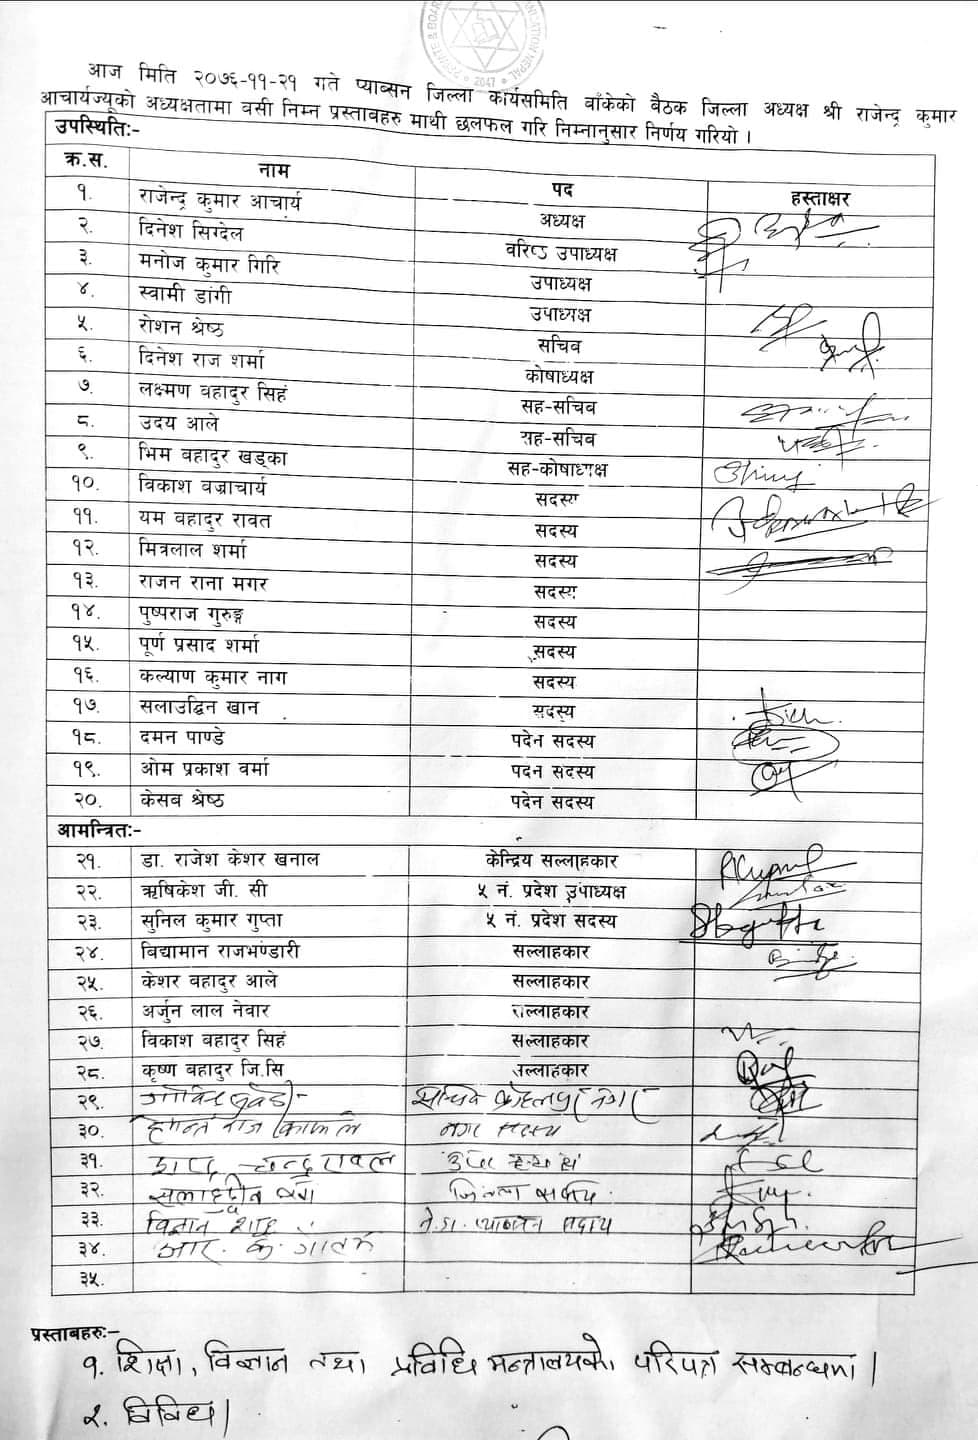 २०४७
आज मिति २०७६-११-२१ गते प्याब्सन जिल्ला कार्यसमिति बाँकेको बैठक जिल्ला अध्यक्ष श्री राजेन्द्र कुमार
आचार्यज्यूको अध्यक्षतामा वसी निम्न प्रस्तावहरु माथी छलफल गरि निम्नानुसार निर्णय गरियो ।
उपस्थितिः-
क्र.स. नाम पद हस्ताक्षर
१. राजेन्द्र कुमार आचार्य अध्यक्ष
२. दिनेश सिग्देल वरिष्ठ उपाध्यक्ष
३. मनोज कुमार गिरि उपाध्यक्ष
४. स्वामी डांगी उपाध्यक्ष
५. रोशन श्रेष्ठ सचिव
६. दिनेश राज शर्मा कोषाध्यक्ष
७. लक्ष्मण वहादुर सिहं सह-सचिब
८. उदय आले सह-सचिब
९. भिम बहादुर खड्का सह-कोषाध्यक्ष
१०. विकाश वज्राचार्य सदस्य
११. यम बहादुर रावत सदस्य
१२. मित्रलाल शर्मा सदस्य
१३. राजन राना मगर सदस्य
१४. पुष्पराज गुरुङ्ग सदस्य
१५. पूर्ण प्रसाद शर्मा सदस्य
१६. कल्याण कुमार नाग सदस्य
१७. सलाउद्दिन खान सदस्य
१८. दमन पाण्डे पदेन सदस्य
१९. ओम प्रकाश वर्मा पदेन सदस्य
२०. केसब श्रेष्ठ पदेन सदस्य
आमन्त्रितः-
२१. डा. राजेश केशर खनाल केन्द्रिय सल्लाहकार
२२. ऋषिकेश जी. सी ५ नं. प्रदेश उपाध्यक्ष
२३. सुनिल कुमार गुप्ता ५ नं. प्रदेश सदस्य
२४. बिद्यामान राजभण्डारी सल्लाहकार
२५. केशर बहादुर आले सल्लाहकार
२६. अर्जुन लाल नेवार सल्लाहकार
२७. विकाश बहादुर सिहं सल्लाहकार
२८. कृष्ण बहादुर जि.सि सल्लाहकार
२९.
३०. हेमन्त राज काफ्ले नगर सदस्य
३१.
३२. सलाहुद्दीन
३३.
३४. आर. के. गौतम
३५.
प्रस्ताबहरुः-
१. शिक्षा, विज्ञान तथा प्रविधि मन्त्रालयको परिपत्र सम्बन्धमा।
२. विविध।